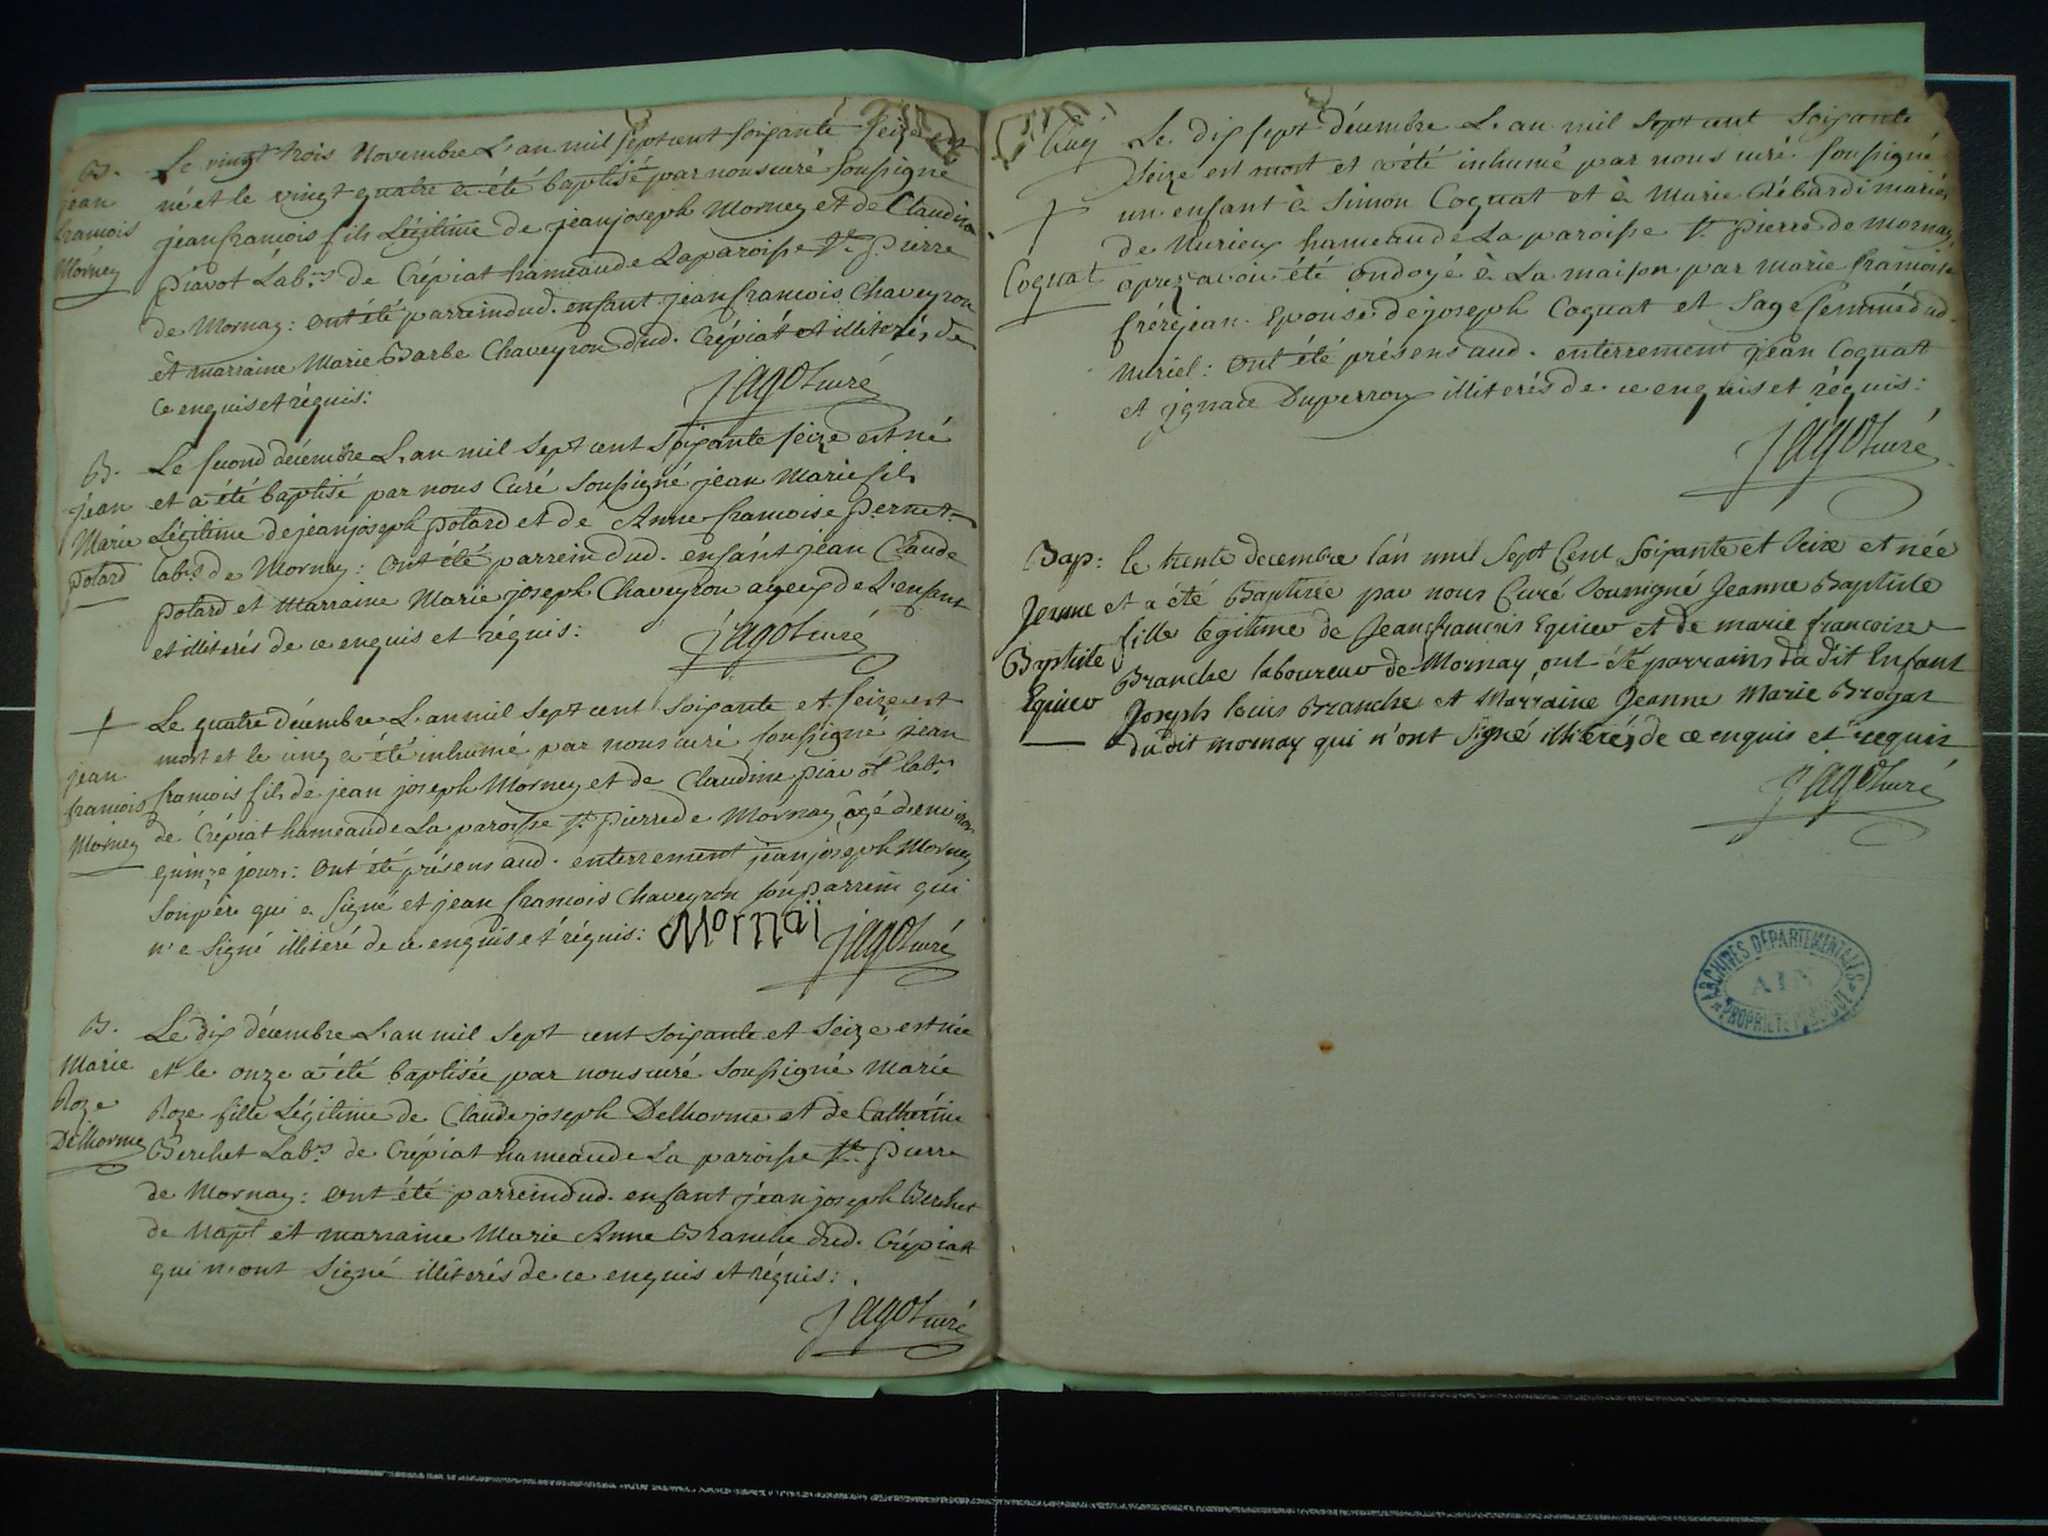 B.
jean
francois
Morney
Le vingt trois Novembre L'an mil sept cent soixante seize est
né et le vingt quatre a été baptisé par nous curé soussigné
jean francois fils Légitime de jean joseph Morney et de Claudine
piavot Lab.rs de Crépiat hameau de La paroisse St. pierre
de Mornay: ont été parrein dud. enfant jean francois Chaveyron
et marraine Marie Barbe Chaveyron dud. Crépiat et illiterés de
ce enquis et réquis:
jagot curé
B.
jean
Marie
potard
Le second décembre L'an mil sept cent soixante seize est né
et a été baptisé par nous Curé soussigné jean Marie fils
Légitime de jean joseph potard et de Anne francoise pernet
lab.rs de Mornay: ont été parrein dud. enfant jean Claude
potard et Marraine Marie joseph Chaveyron ayeux de L'enfant
et illiterés de ce enquis et réquis:
jagot curé
jean
francois
Morney
Le quatre décembre L'an mil sept cent soixante et seize est
mort et le cinq a été inhumé par nous curé soussigné jean
francois fils de jean joseph Morney et de Claudine piavot lab.rs
de Crépiat hameau de La paroisse St. pierre de Mornay âgé denviron
quinze jours: ont été présens aud. enterrement jean joseph Morney
son père qui a signé et jean francois Chaveyron son parrein qui
n'a signé illiteré de ce enquis et réquis: Mornaÿ
jagot curé
B.
Marie
Roze
Delhorme
Le dix décembre L'an mil sept cent soixante et seize est née
et le onze a été baptisée par nous curé soussigné Marie
Roze fille Légitime de Claude joseph Delhorme et de Catherine
Berchet Lab.rs de Crépiat hameau de La paroisse St. pierre
de Mornay: ont été parrein dud. enfant jean joseph Berchet
de Napt et marraine Marie Anne Branche dud. Crépiat
qui n'ont signé illiterés de ce enquis et réquis:
jagot curé
Coquat
Le dix sept décembre L'an mil sept cent soixante
seize est mort et a été inhumé par nous curé soussigné
un enfant à Simon Coquat et à Marie Débardi mariés
de Nurieux hameau de La paroisse St. pierre de Mornay,
aprez avoir été ondoyé à La maison par Marie francoise
fréréjean Epouse de joseph Coquat et sage femme dud.
Nuriel: ont été présens aud. enterrement jean Coquat
et ignace Duperroux illiterés de ce enquis et réquis:
jagot curé
Bap:
Jeanne
Baptiste
Equier
le trente decembre l'an mil sept Cent soixante et seize et née
et a été Baptisée par nous Curé soussigné Jeanne Baptiste
fille legitime de Jean francois Equier et de marie francoise
Branche laboureur de Mornay, ont été parrains du dit Enfant
Joseph louis Branche et Marraine Jeanne Marie Brogat
du dit mornay qui n'ont signé illiterés de ce enquis et requis
jagot curé
ARCHIVES DÉPARTEMENTALES
AIN
PROPRIÉTÉ PUBLIQUE